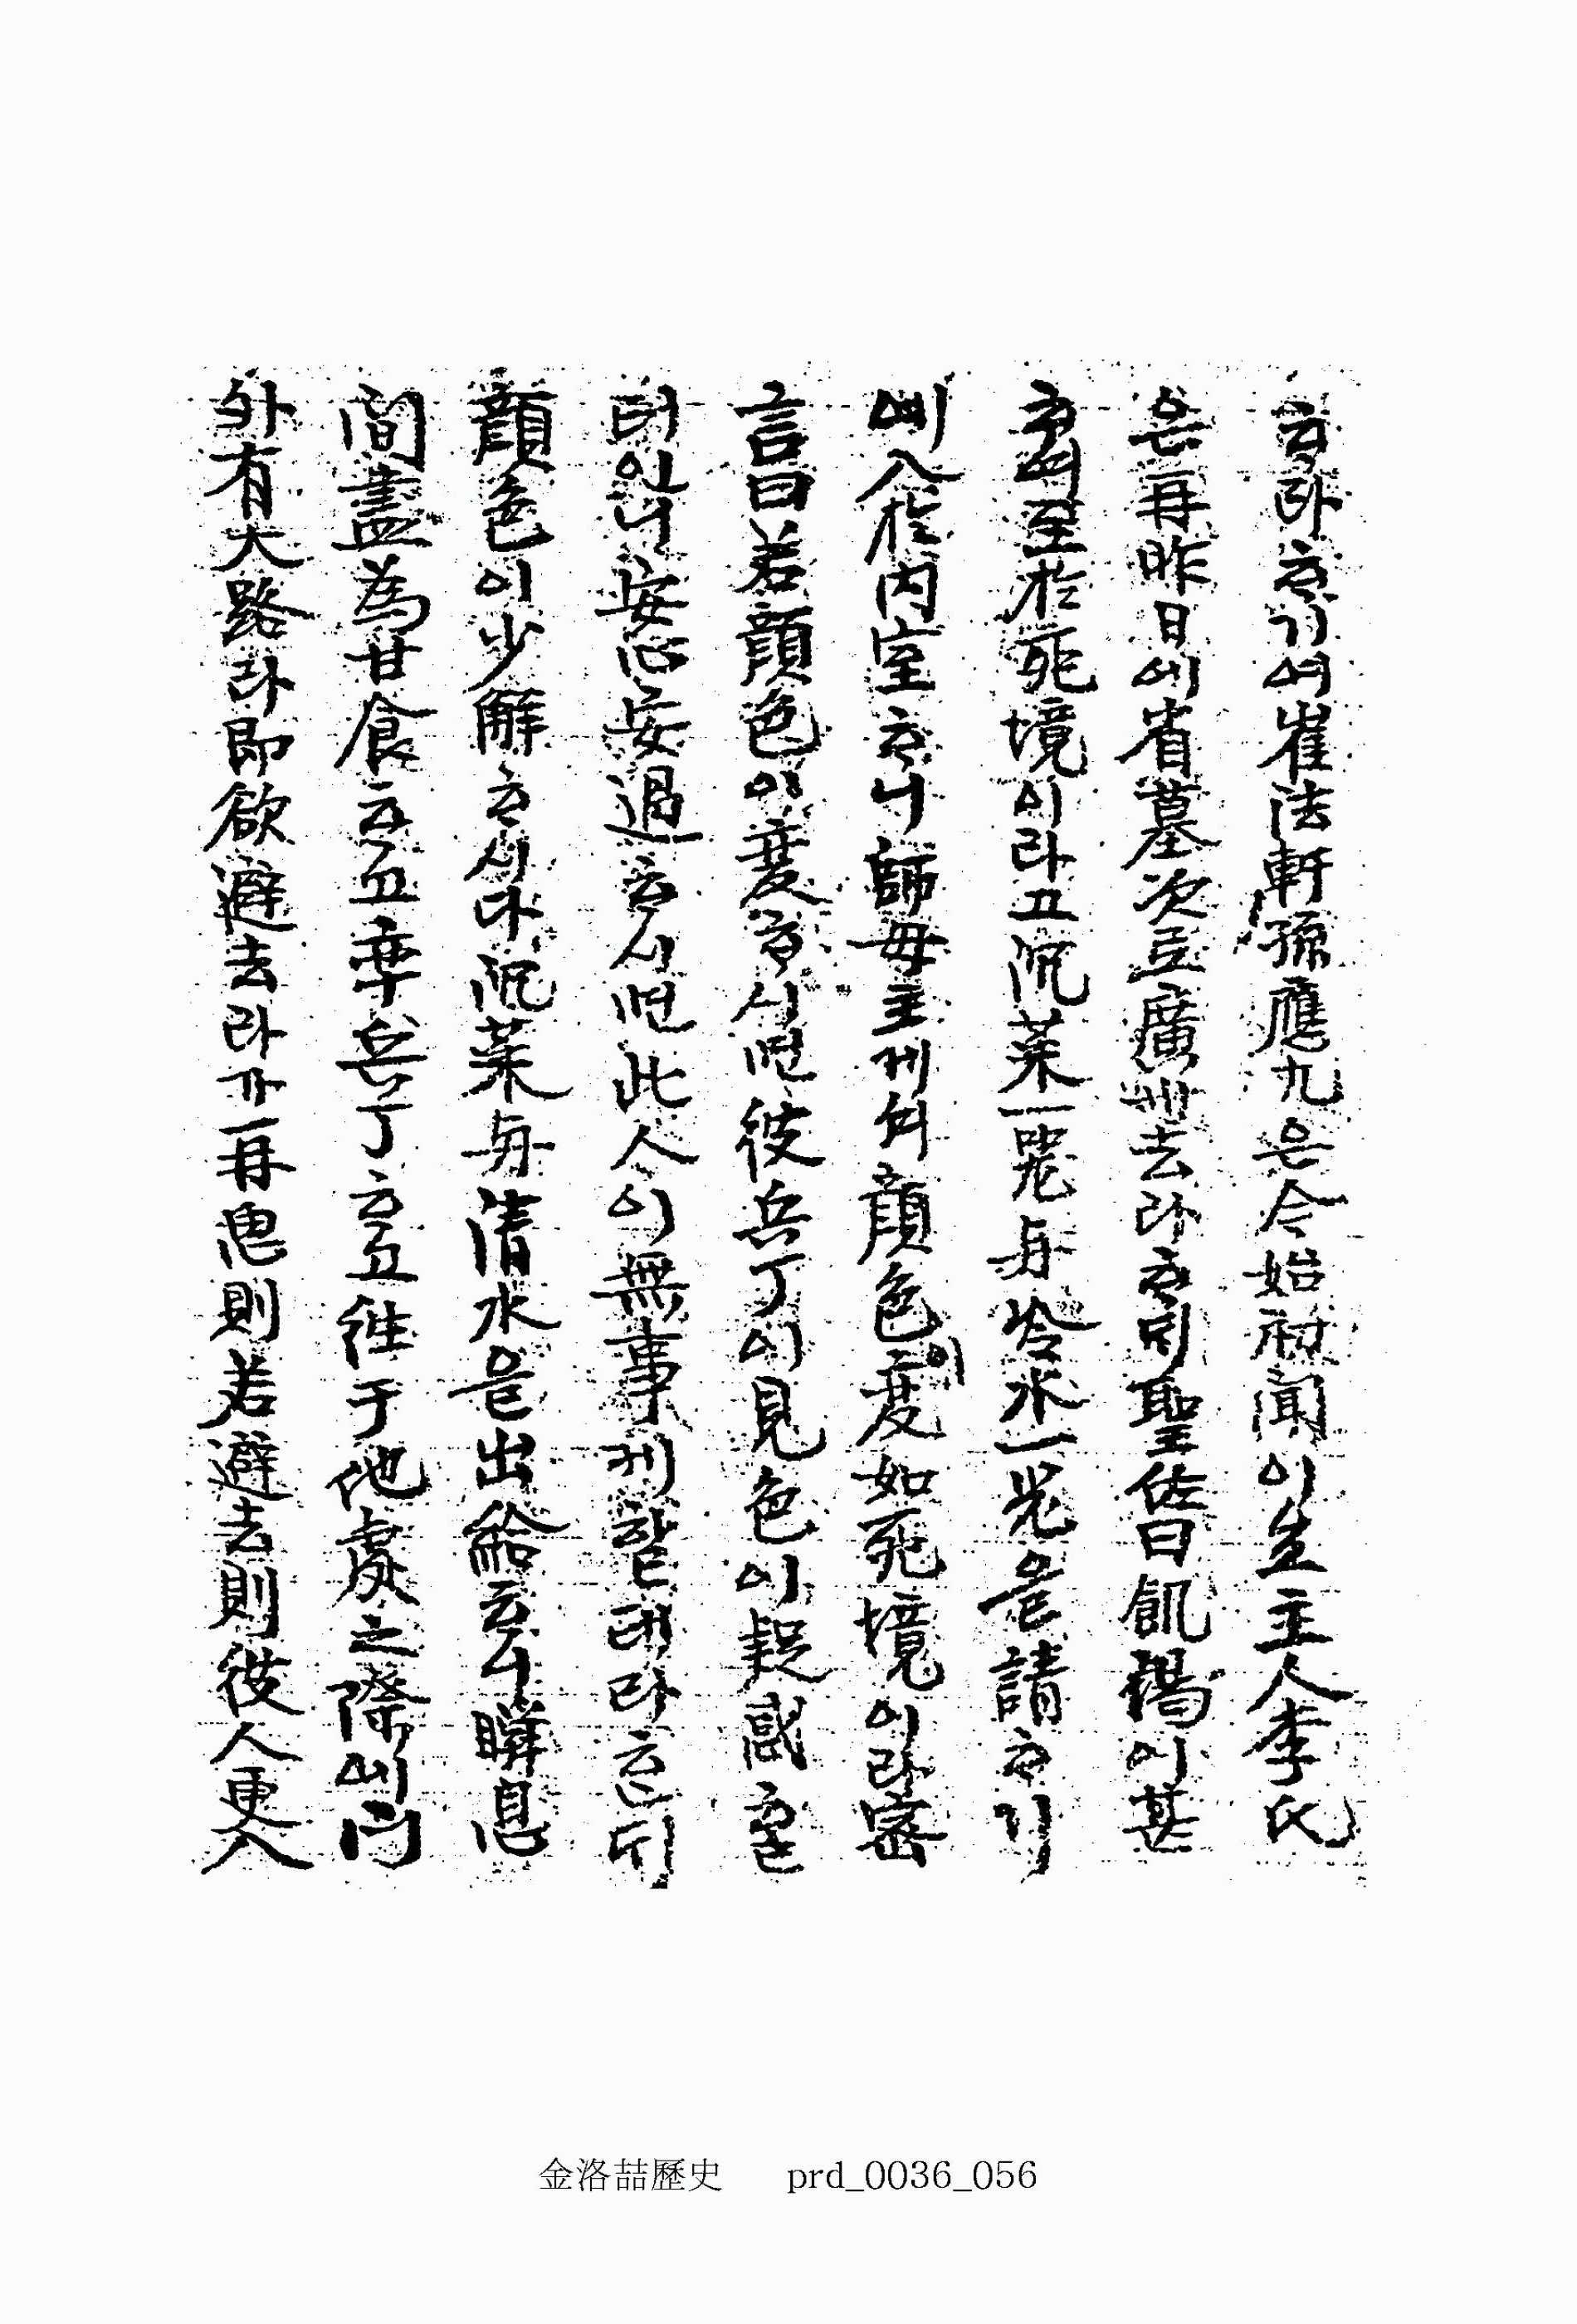 ᄒᆞ라 ᄒᆞ기여 崔法軒 孫應九은 今始初聞이 主人 李氏
은 再昨日에 省墓次로 廣州去라 ᄒᆞᆫᄃᆡ 聖佐曰 飢渴이 甚
ᄒᆞ여 至於死境이라고 沉菜一器与冷水一器을 請ᄒᆞ기
예 入於內室ᄒᆞ니 師母主게셔 顔色이 変如死境이라 密
言曰 若顔色이 変ᄒᆞ시면 彼兵丁이 見色이 疑惑ᄒᆞᆯ
터이니 安心安過ᄒᆞ시면 此人이 無事케 할 테라 ᄒᆞᆫᄃᆡ
顔色이 少解ᄒᆞ시다 沉菜与淸水을 出給ᄒᆞ니 瞬息
間盡爲甘食ᄒᆞ고 率兵丁ᄒᆞ고 往于他處之際에 門
外有大路라 卽欲避去라가 再思則 若避去則 彼人更入
金洛喆歷史 prd_0036_056